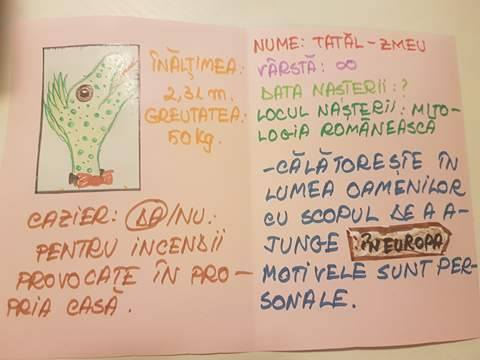 ÎNĂLȚIMEA:
2,31 m.
GREUTATEA:
50 Kg.
CAZIER: DA/NU:
PENTRU INCENDII
PROVOCATE ÎN PRO-
PRIA CASĂ.
NUME: TATĂL-ZMEU
VÂRSTĂ: ∞
DATA NASTERII: ?
LOCUL NAȘTERII: MITO-
LOGIA ROMÂNEASCĂ
-CĂLĂTOREȘTE ÎN
LUMEA OAMENILOR
CU SCOPUL DE A A-
JUNGE ÎN EUROPA
MOTIVELE SUNT PER-
SONALE.